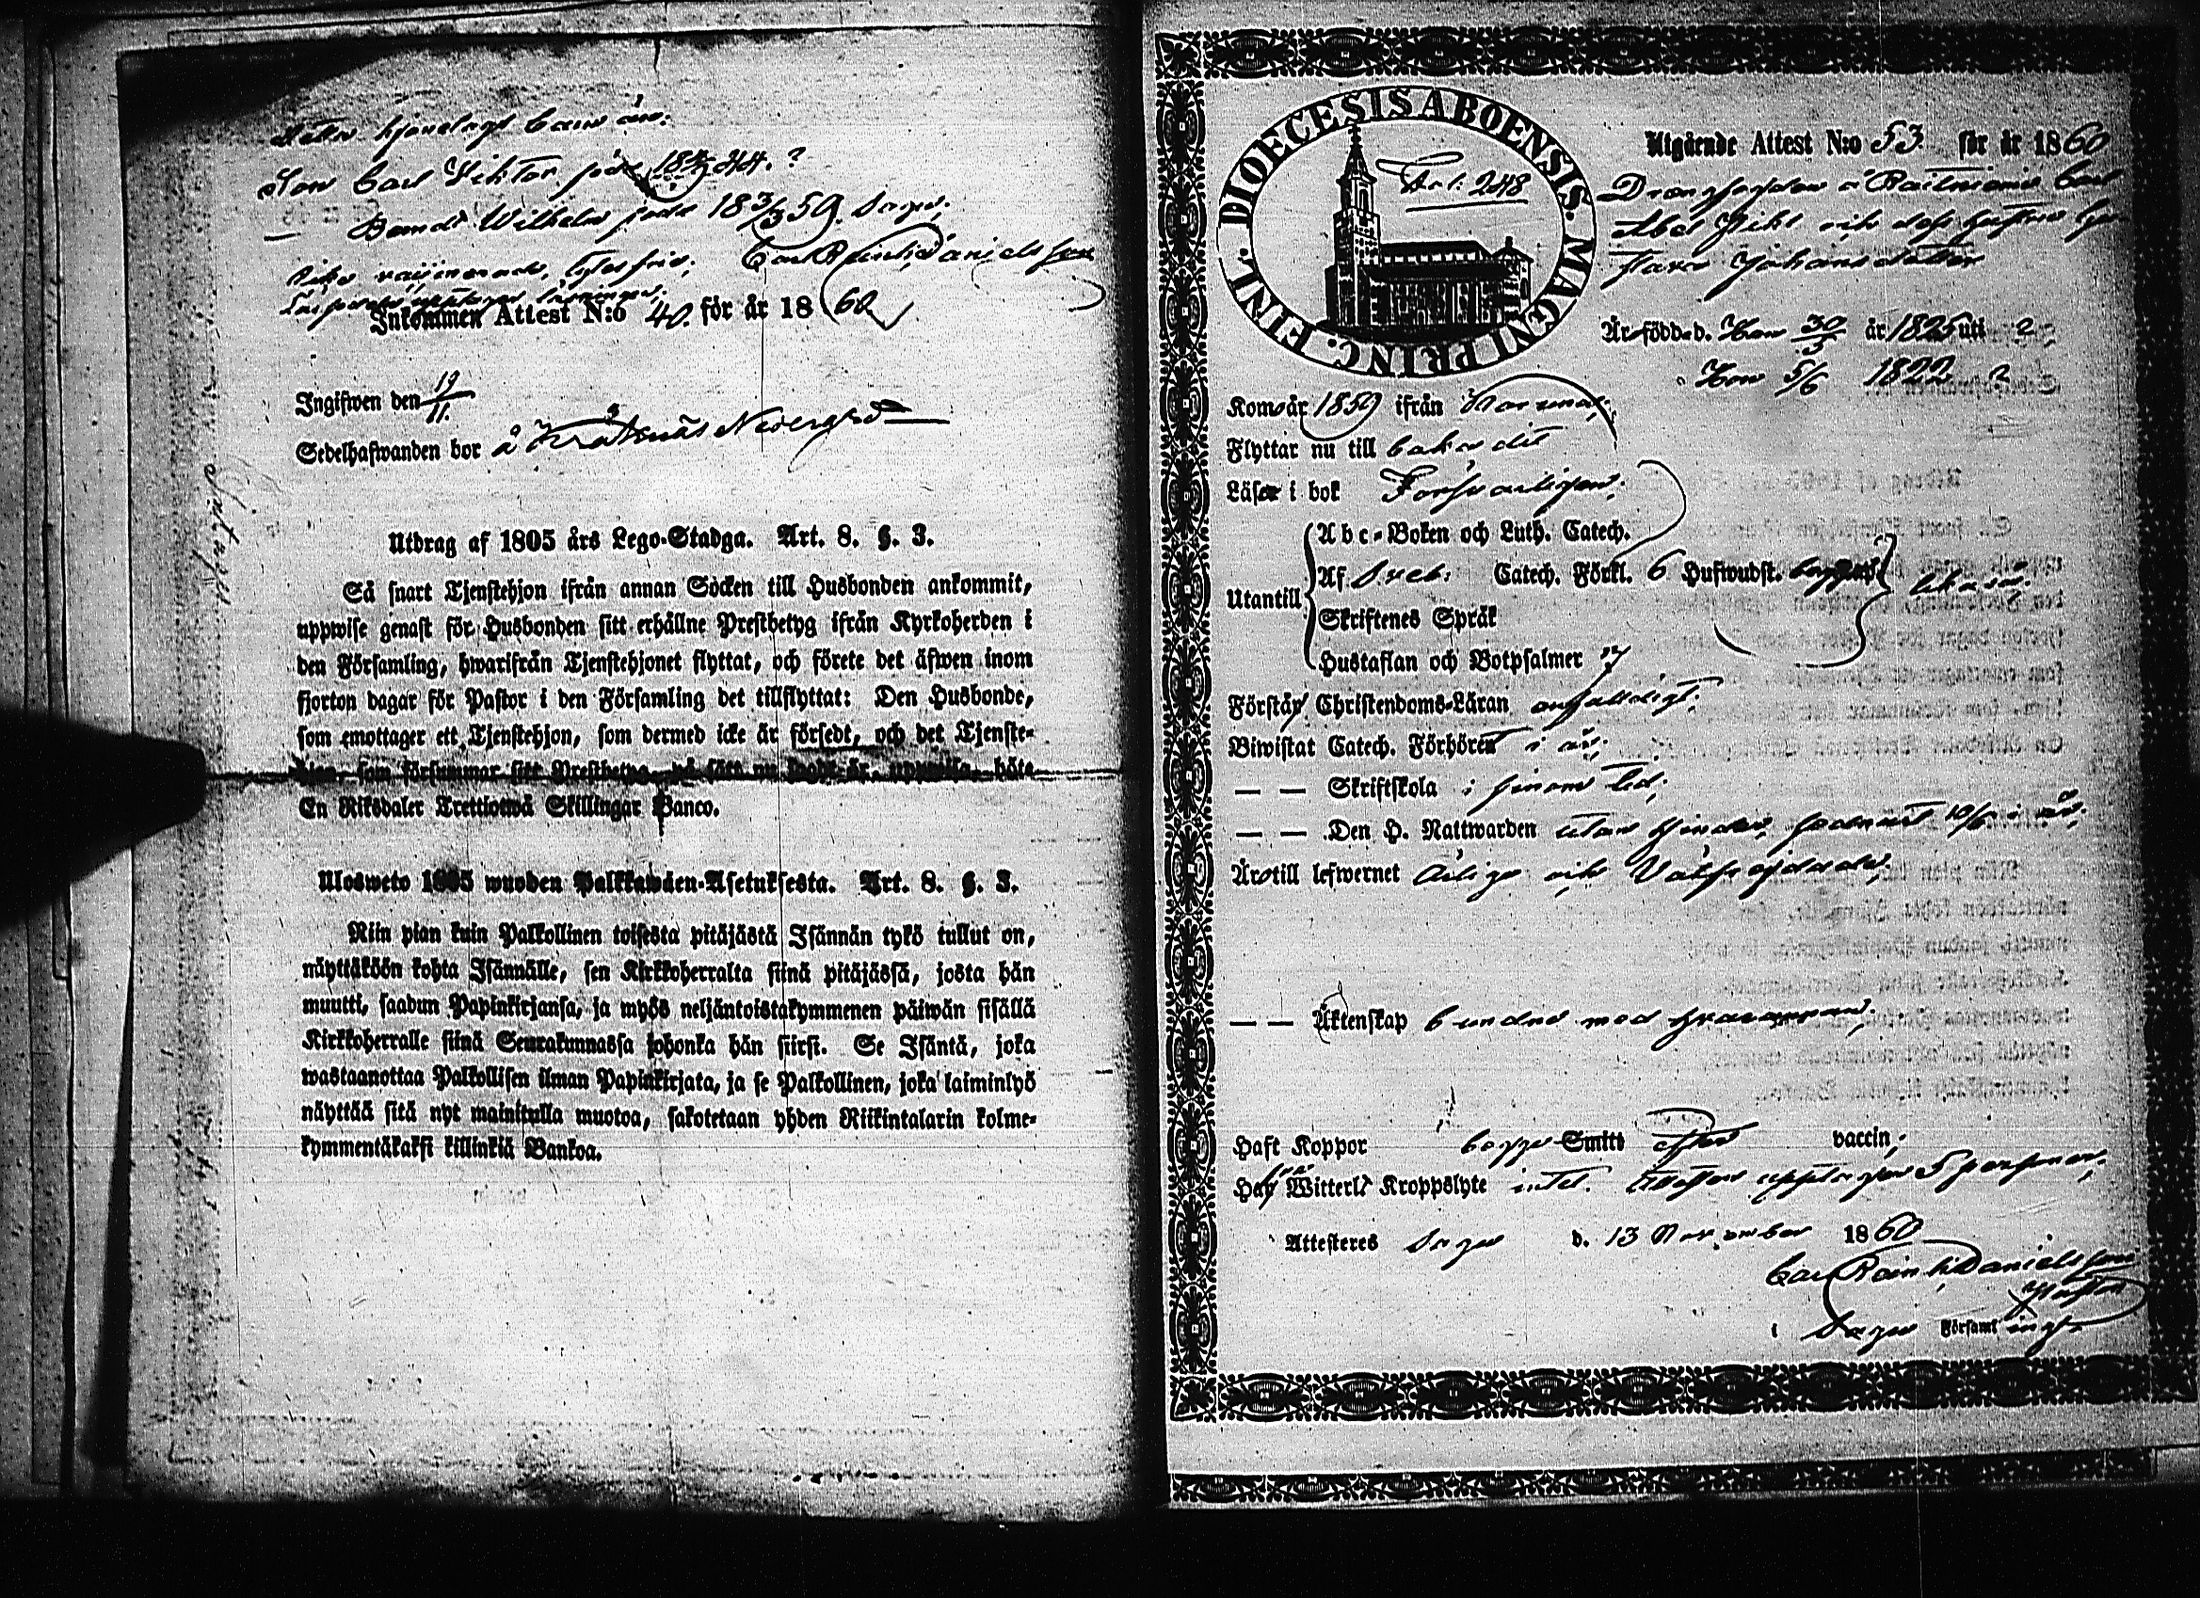 Son Carl Viktor född 18 44.?
— Bernd Wilhelm född 18 3/3 59. Sagu.
Carl Reinh. Danielsson
Inkommen Attest N:o 40. för år 1860
Ingifwen den 19/11.
Sedelhafwanden bor å Nedergård
Utdrag af 1805 års Lego-Stadga. Art. 8. §. 3.
Så snart Tjenstehjon ifrån annan Socken till Husbonden ankommit,
uppwise genast för Husbonden sitt erhållne Prestbetyg ifrån Kyrkoherden i
den Församling, hwarifrån Tjenstehjonet flyttat, och förete det äfwen inom
fjorton dagar för Pastor i den Församling det tillflyttat: Den Husbonde,
som emottager ett Tjenstehjon, som dermed icke är försedt, och det Tjenste-
hjon, som försummar sitt Prestbetyg, på sätt nu sagdt är, uppwisa, böte
En Riksdaler Trettiotwå Skillingar Banco.
Ulosweto 1805 wuoden Palkkawäen-Asetuksesta. Art. 8. §. 3.
Niin pian kuin Palkollinen toisesta pitäjästä Isännän tykö tullut on,
näyttäköön kohta Isännälle, sen Kirkkoherralta siinä pitäjässä, josta hän
muutti, saadun Papinkirjansa, ja myös neljäntoistakymmenen päiwän sisällä
Kirkkoherralle siinä Seurakunnassa johonka hän siirsi. Se Isäntä, joka
wastaanottaa Palkollisen ilman Papinkirjata, ja se Palkollinen, joka laiminlyö
näyttää sitä nyt mainitulla muotoa, sakotetaan yhden Riikintalarin kolme-
kymmentäkaksi killinkiä Bankoa.
DIOECESIS ABOENSIS. MAGNI PRINC. FINL.
248
Utgående Attest N:o 53. för år 1860
Abel och dess hustru
Johansdotter
Är född d. Han 30/3 år 1825 uti ?
Hon 5/6 1822 ?
Kom år 1859 ifrån Korpo
Flyttar nu till baka dit
Läser i bok Försvarligen.
Utantill
Abc-Boken och Luth. Catech.
Af Sveb. Catech. Förkl. 6 Hufwudst. begge likaså.
Skriftenes Språk
Hustaflan och Botpsalmer
Förstår Christendoms-Läran enfaldigt.
Biwistat Catech. Förhören i år.
— — Skriftskola i sinom tid.
— — Den H. Nattwarden utan hinder, sednast 10/6 i år.
Är till lefwernet ärlige och välfrejdade,
— — Äktenskap bundne med hvarannan.
Haft Koppor begge Smitt efter vaccin.
Haf Witterl. Kroppslyte intet. Attesten upptager 5 personer.
Attesteres Sagu d. 13 November 1860
Carl Reinh. Danielsson
Pastor
i Sagu Församling